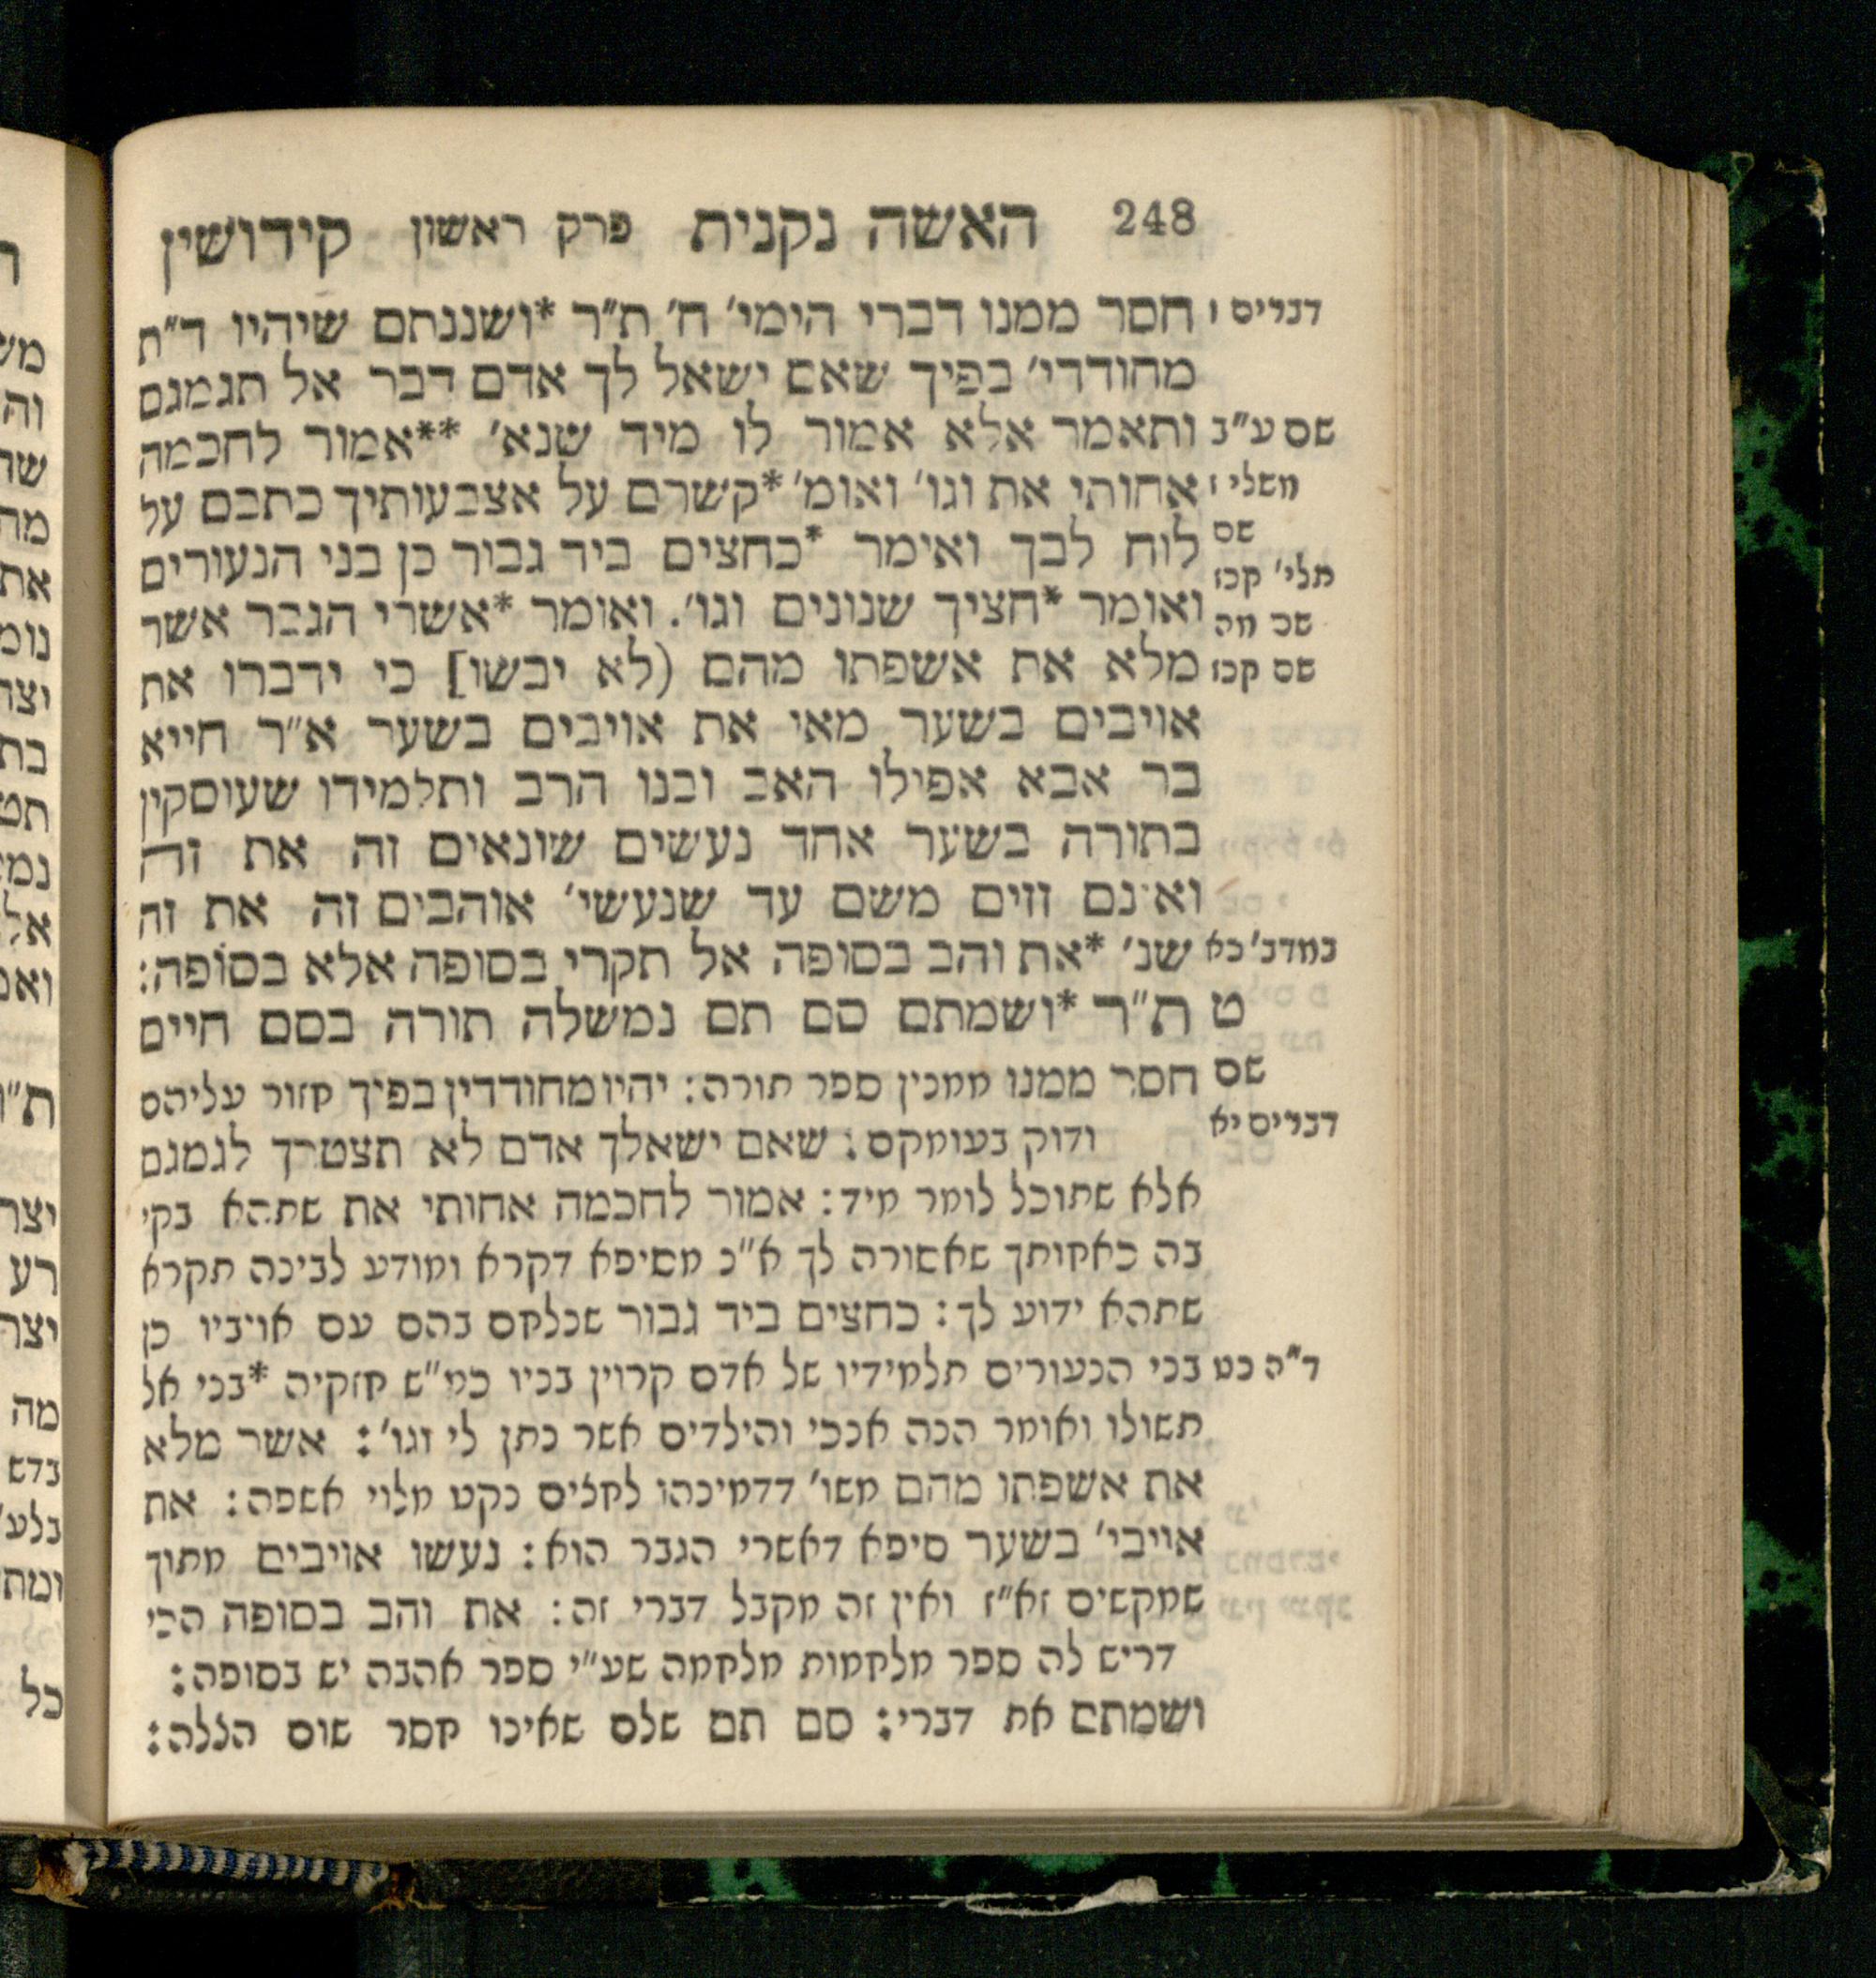 248 האשה נקנית פרק ראשון קידושין
דברים ו חסר ממנו דברי הימי׳ ח׳ ת״ר *ושננתם שיהיו ד״ת
מחודדי׳ בפיך שאם ישאל לך אדם דבר אל תגמגם
שם ע״ב ותאמר אלא אמור לו מיד שנא׳ **אמור לחכמה
משלי ז אחותי את וגו׳ ואומ׳ *קשרם על אצבעותיך כתבם על
שם לוח לבך ואימר *כחצים ביד גבור כן בני הנעורים
תלי׳ קכז
ואומר *חציך שנונים וגו׳. ואומר *אשרי הגבר אשר
שם מה
שם קכז מלא את אשפתו מהם (לא יבשו] כי ידברו את
אויבים בשער מאי את אויבים בשער א״ר חייא
בר אבא אפילו האב ובנו הרב ותלמידו שעוסקין
בתורה בשער אחד נעשים שונאים זה את זה
ואינם זזים משם עד שנעשי׳ אוהבים זה את זה
במדב׳ כא שנ׳ *את והב בסופה אל תקרי בסופה אלא בסופה:
ט ת״ר *ושמתם סם תם נמשלה תורה בסם חיים
שם
חסר ממנו ממנין ספר תורה: יהיו מחודדין בפיך חזור עליהם
דברים יא
ודוק בעומקם: שאם ישאלך אדם לא תצטרך לגמגם
אלא שתוכל לומר מיד: אמור לחכמה אחותי את שתהא בקי
בה כאחותך שאסורה לך א״נ מסיפא דקרא ומודע לבינה תקרא
שתהא ידוע לך: כחצים ביד גבור שנלחם בהם עם אויביו כן
ד״ה כט בני הנעורים תלמידיו של אדם קרוין בניו כמ״ש חזקיה *בני אל
תשולו ואומר הנה אנכי והילדים אשר נתן לי וגו׳: אשר מלא
את אשפתו מהם משו׳ דדמינהו לחצים נקט מלוי אשפה: את
אויבי׳ בשער סיפא דאשרי הגבר הוא: נעשו אויבים מתוך
שמקשים זא״ז ואין זה מקבל דברי זה: את והב בסופה הכי
דריש לה ספר מלחמות מלחמה שע״י ספר אהבה יש בסופה:
ושמתם את דברי: סם תם שלם שאינו חסר שום הללה: